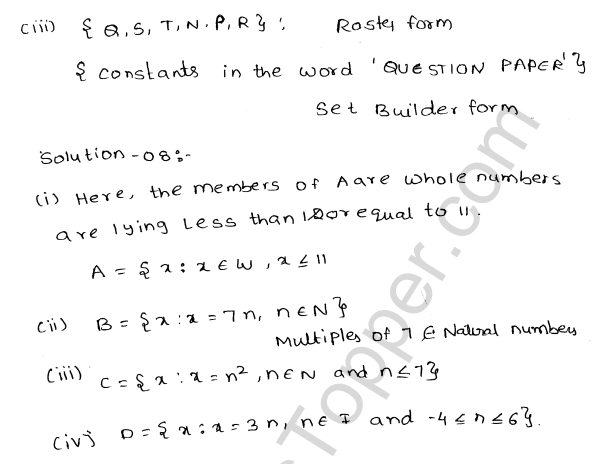 (iii) { Q, S, T, N. P, R } ; Roster form
{ constants in the word 'QUESTION PAPER' }
Set Builder form
Solution-08:-
(i) Here, the members of A are whole numbers
are lying Less than or equal to 11.
A = { x : x ∈ W , x ≤ 11
(ii) B = { x : x = 7n, n ∈ N }
Multiples of 7 ∈ Natural numbers
(iii) C = { x : x = n², n ∈ N and n ≤ 7 }
(iv) D = { x : x = 3n, n ∈ I and -4 ≤ n ≤ 6 }.
Topper.com